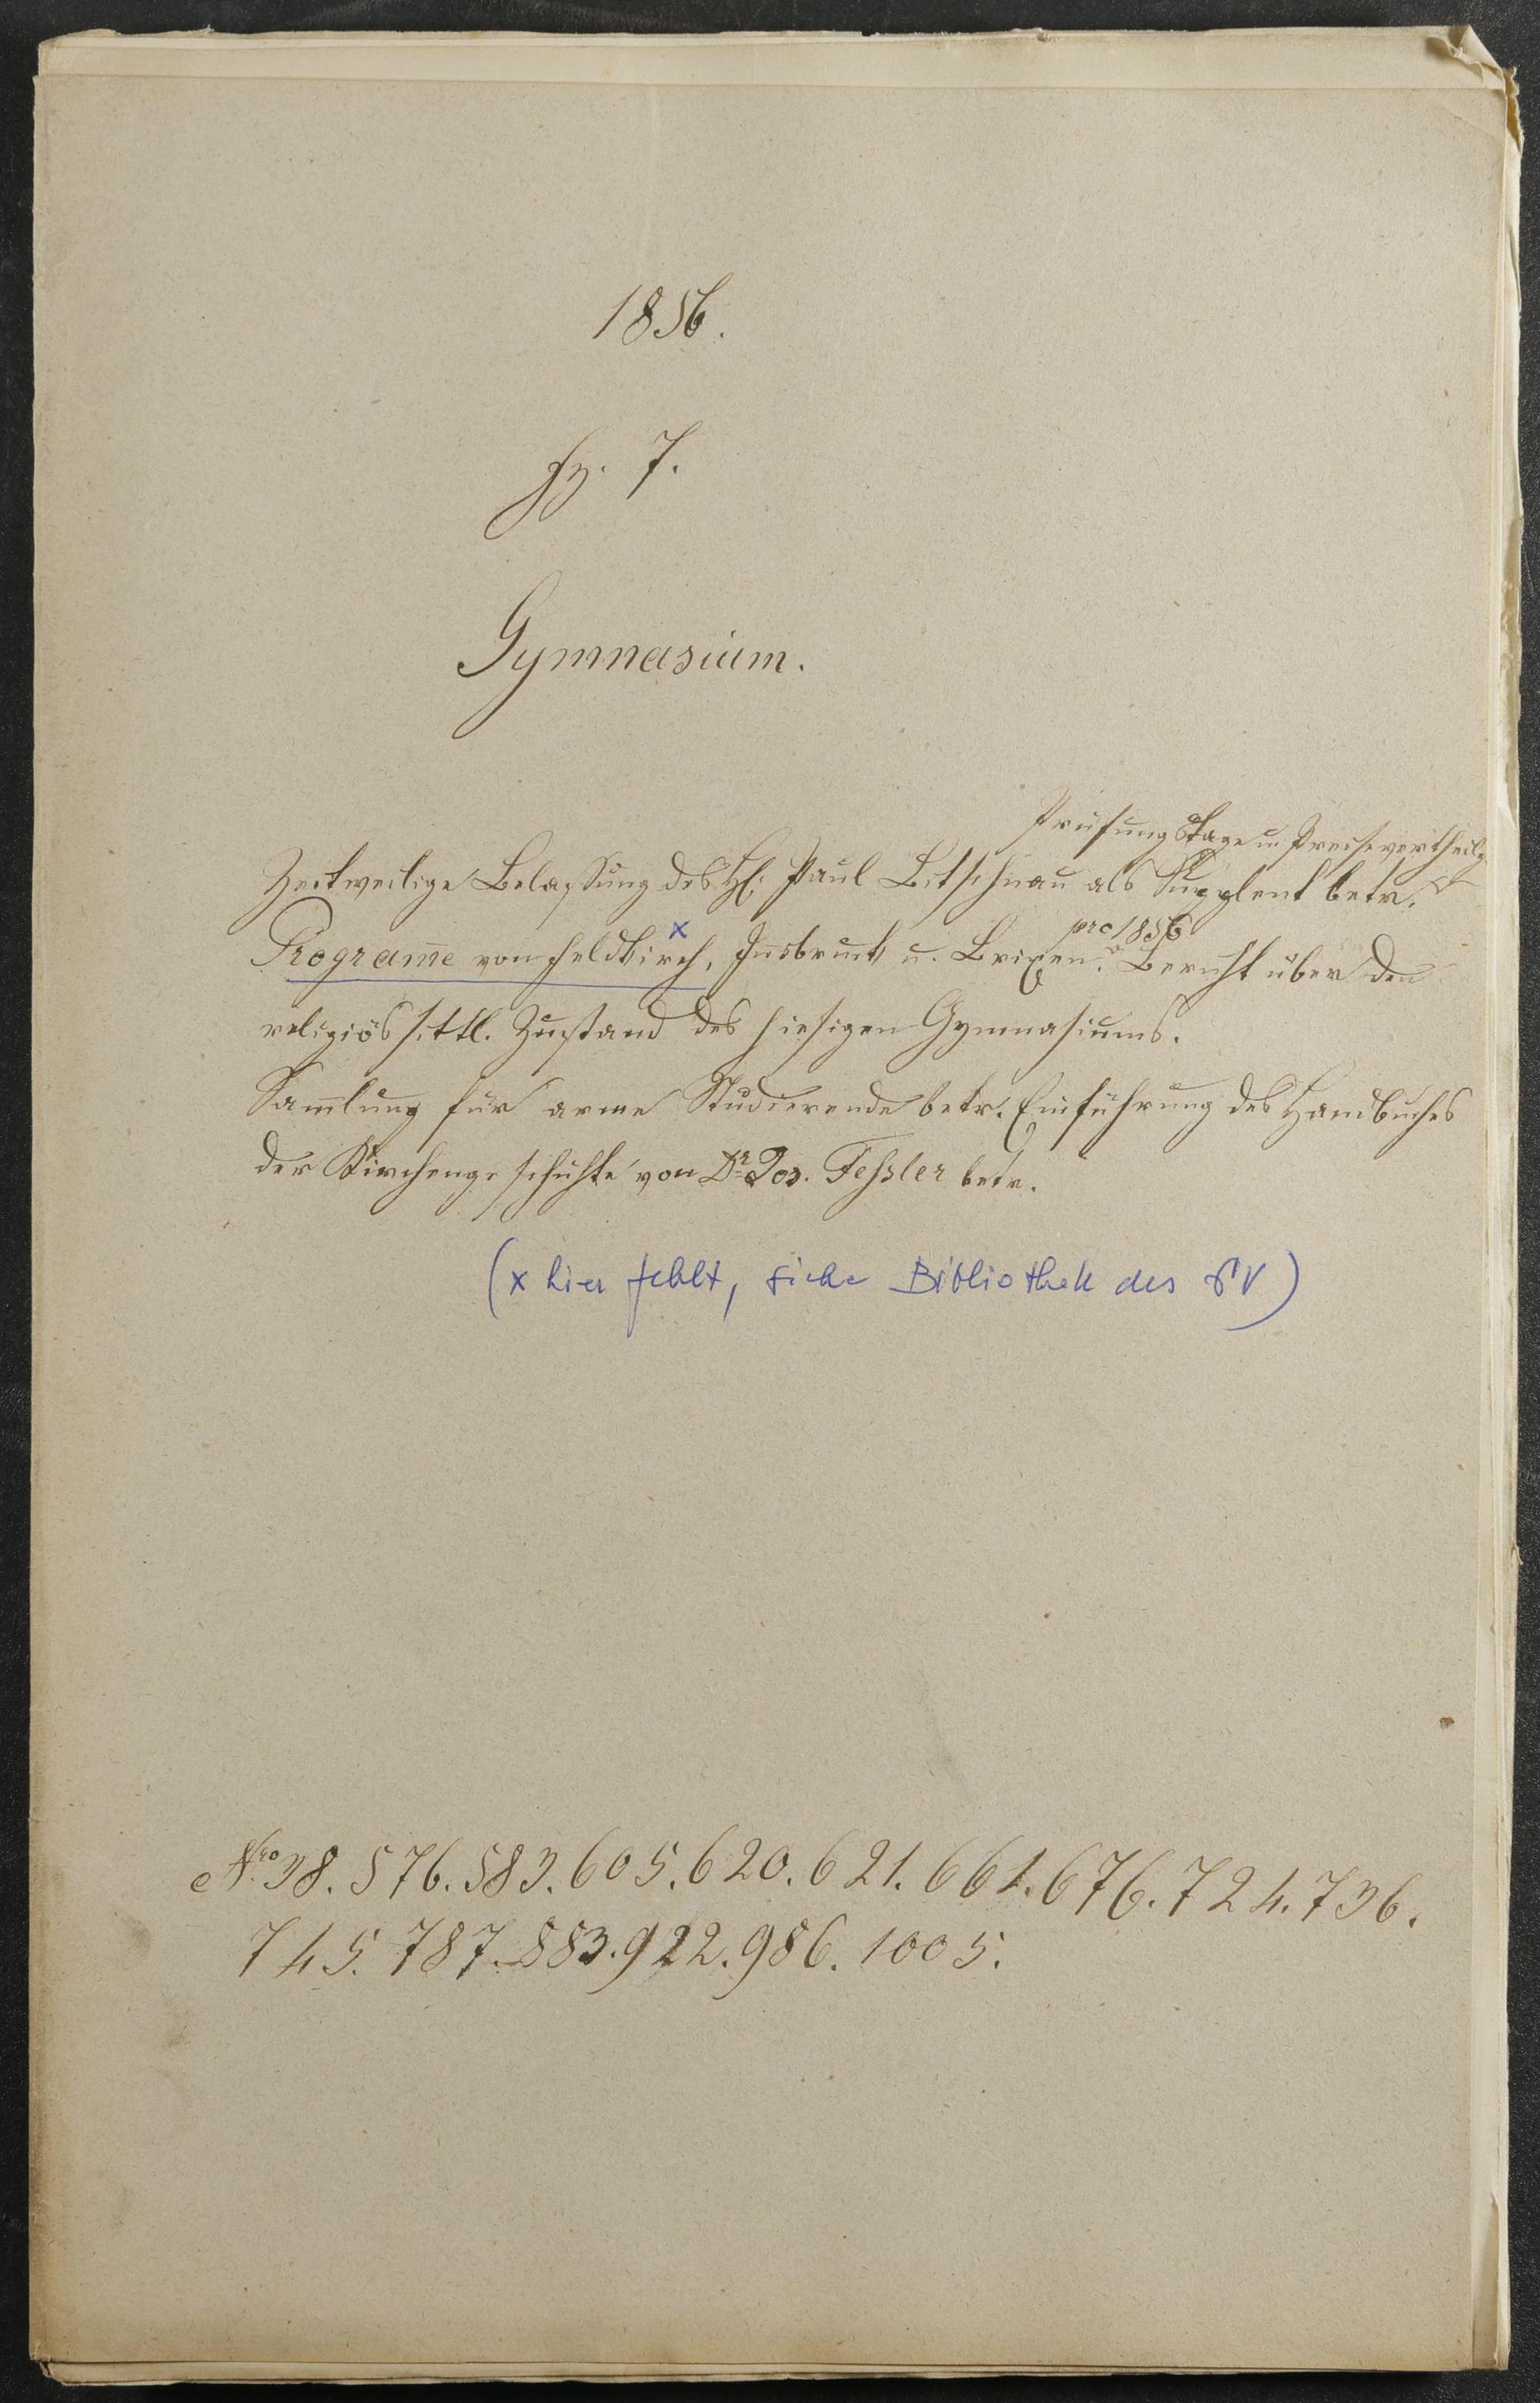 1856.
Fz. 7.
Gymnasium.
Prüfungstage u. Preisevertheilg
Zeitweilige Belassung des H: Paul Bitschnau als Supplent betr.
pro 1856
Programme von Feldkirch, x Insbruck u. Brixen. Bericht über den
religiös sittl. Zustand des hiesigen Gymnasiums.
Samlung für arme Studierende betr. Einführung des Handbuches
der Kirchengeschichte von Dr. Jos. Fessler betr.
(x hier fehlt, siehe Bibliothek des GV)
Nro 38. 576. 583. 605. 620. 621. 661. 676. 724. 736.
745. 787. 883. 922. 986. 1005.